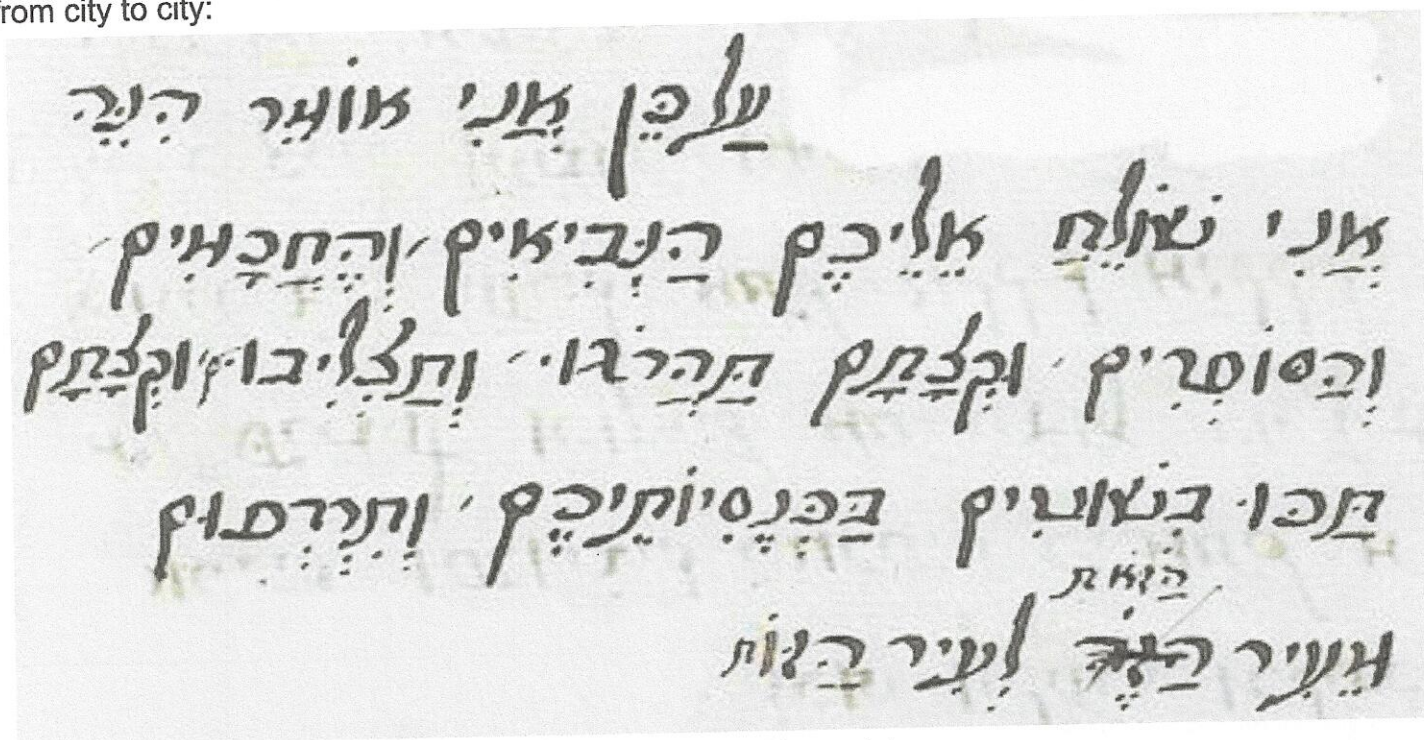 from city to city:
עַל כֵּן אֲנִי אוֹמֵר הִנֵּה
אֲנִי שׁוֹלֵחַ אֲלֵיכֶם הַנְּבִיאִים וְהֶחֲכָמִים
וְהַסוֹפְרִים וּקְצָתָם תַּהֲרֹגוּ וְתַצְלִיבוּ וּקְצָתָם
תַּכּוּ בְּשׁוֹטִים בַּכְּנֶסִיּוֹתֵיכֶם וְתִרְדְפוּם
הַזֹּאת
מֵעִיר לְעִיר הַזּוֹת